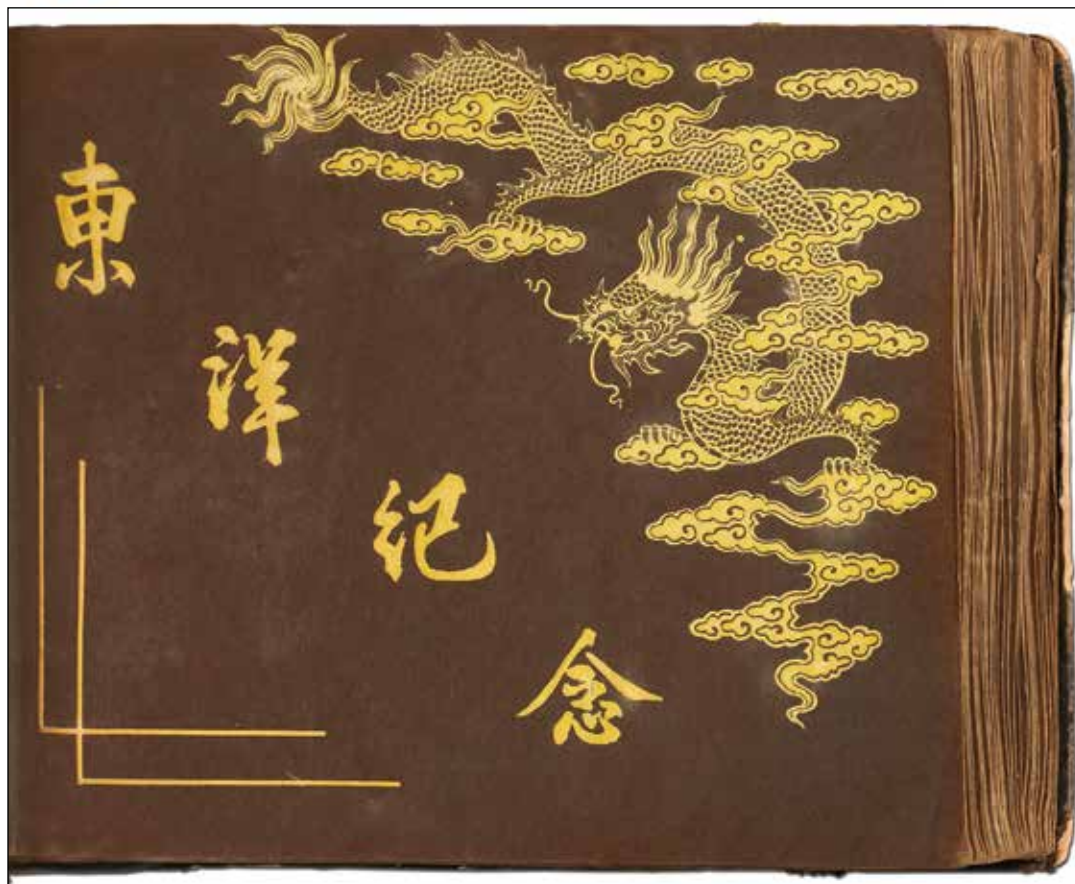 東洋紀念